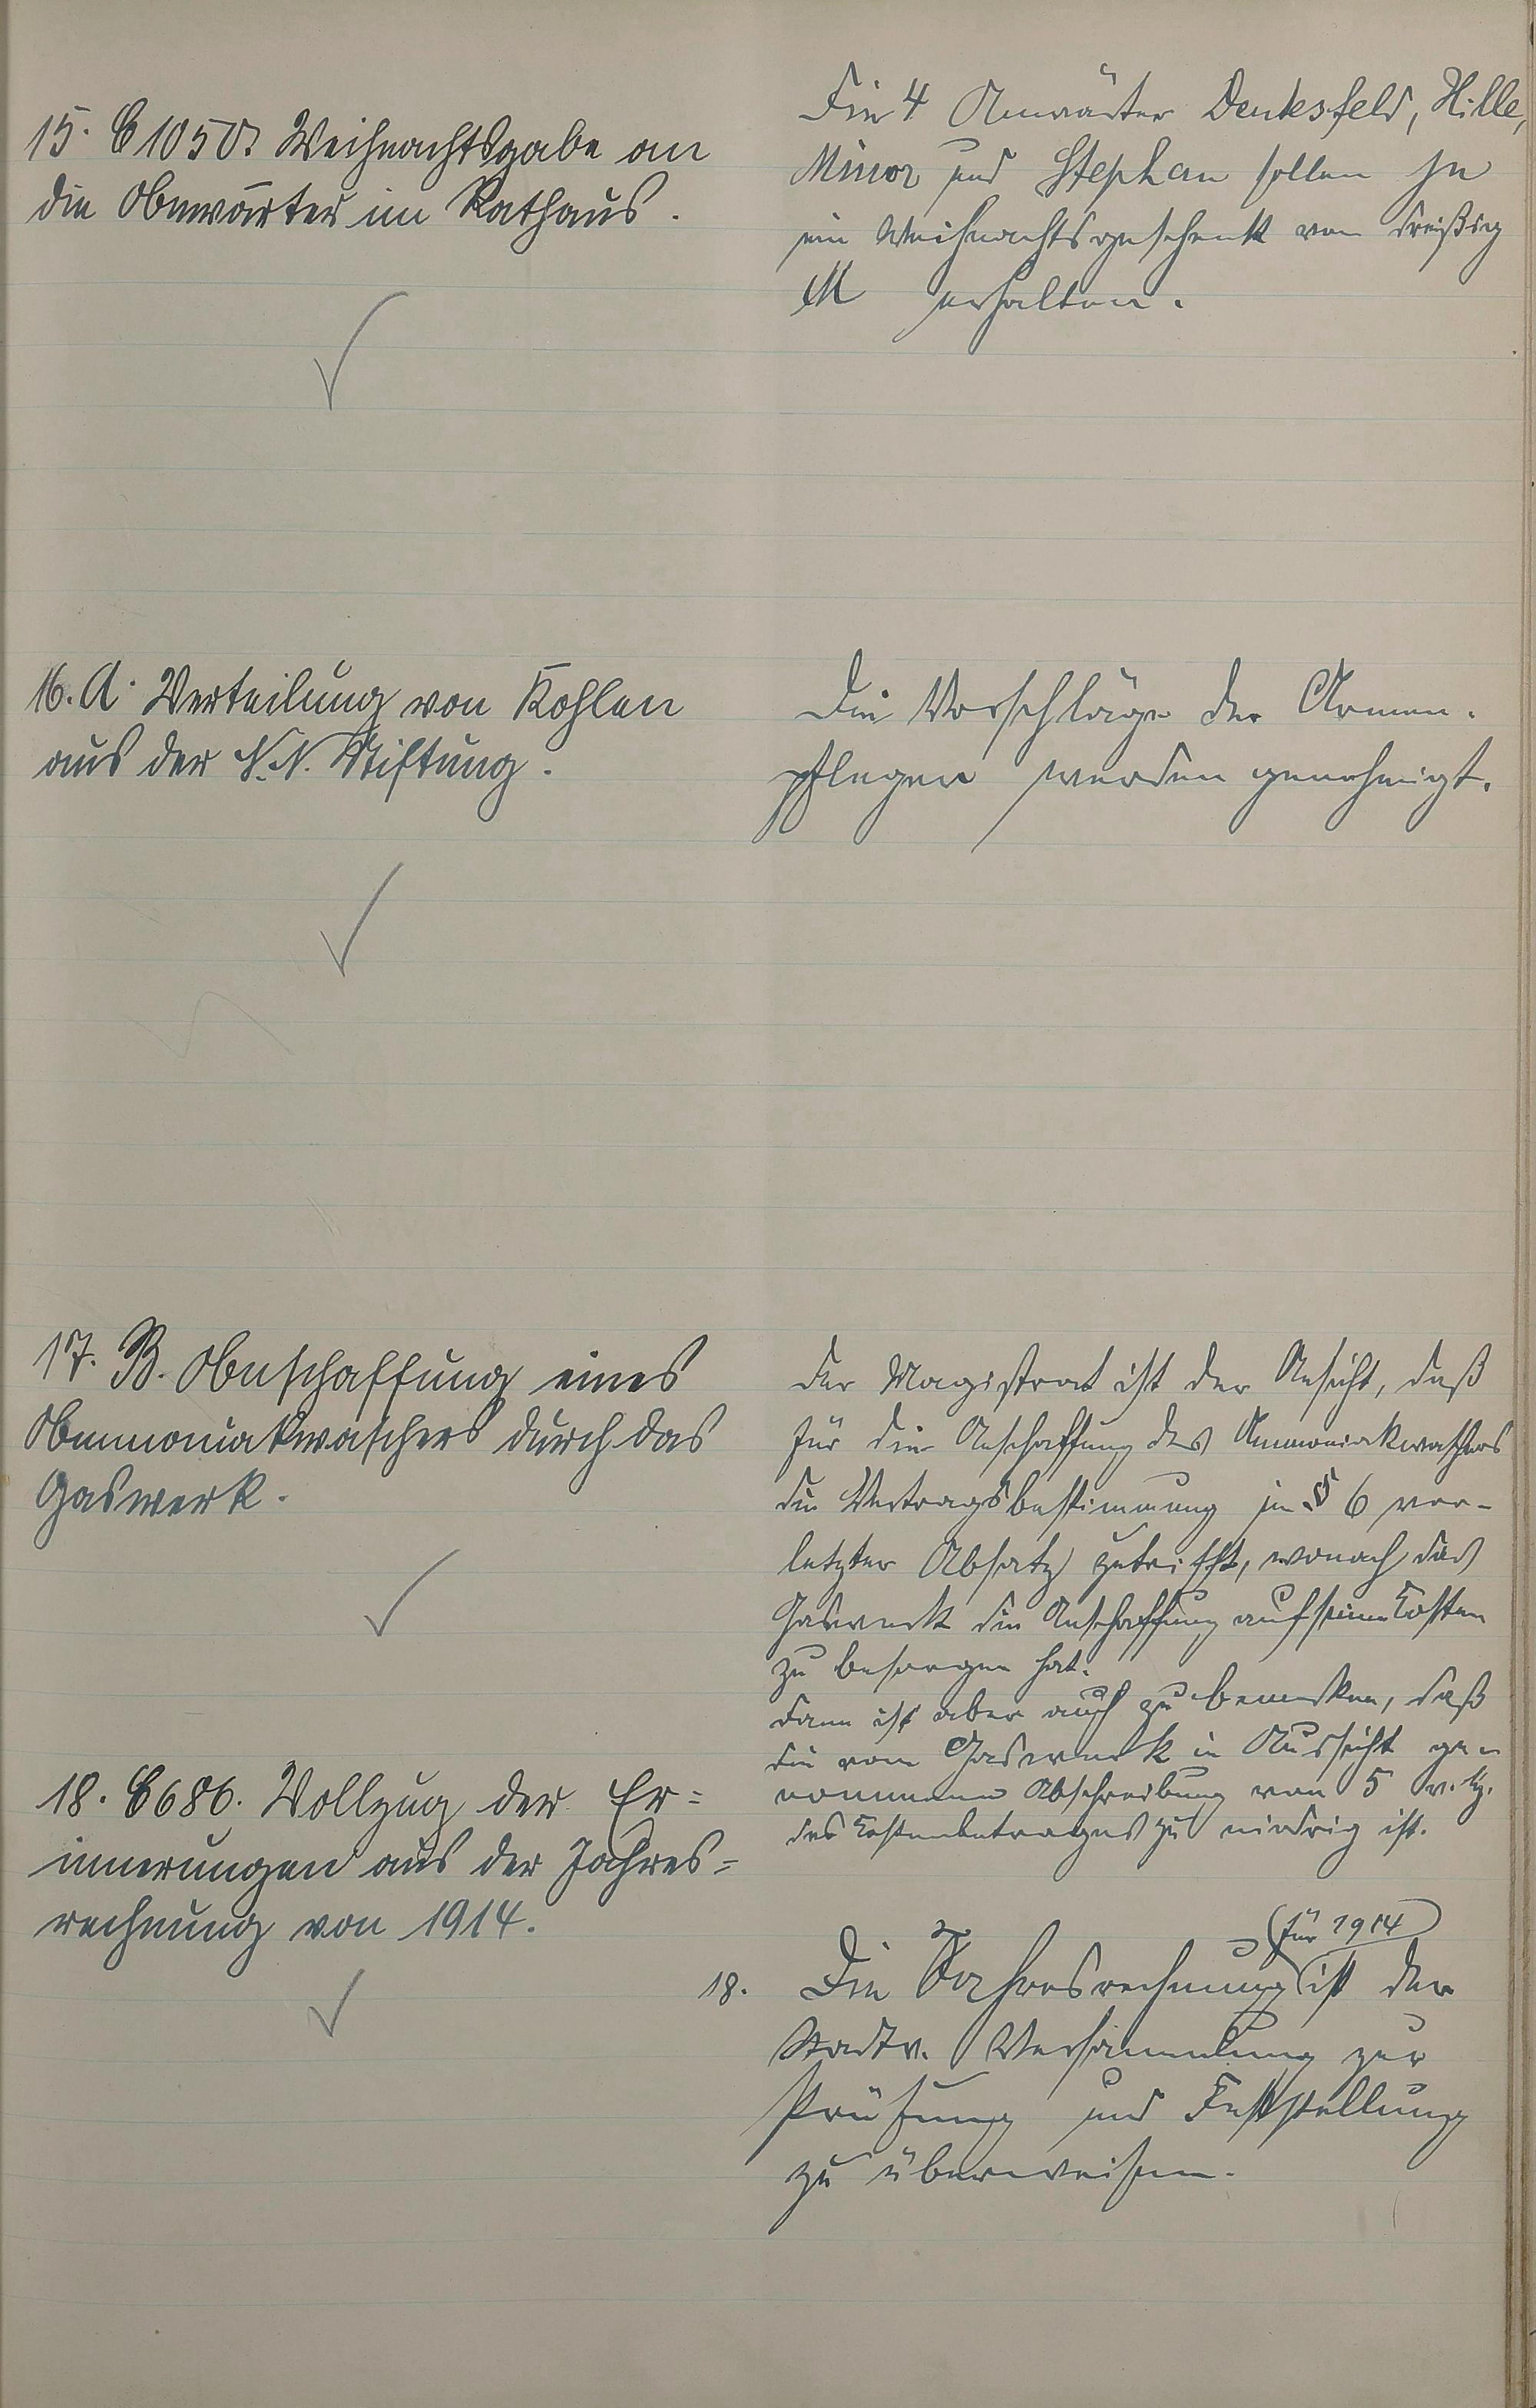 15. C 1050. Weihnachtsgabe an
die Anwärter im Rathaus.
Die 4 Anwärter Denkesfeld, Hille,
Minor und Stephan sollen je
ein Weihnachtsgeschenk von dreißig
M erhalten.
16. A. Verteilung von Kohlen
aus der N.N. Stiftung.
Die Vorschläge der Armen-
pfleger werden genehmigt.
17. B. Anschaffung eines
Ammoniakwaschers durch das
Gaswerk.
Der Magistrat ist der Ansicht, daß
für die Anschaffung des Ammoniakwaschers
die Vertragsbestimmung in § 6 vor-
letzter Absatz zutrifft, wonach das
Gaswerk die Anschaffung auf seine Kosten
zu besorgen hat.
Dann ist aber auch zu bemerken, daß
die vom Gaswerk in Aussicht ge-
nommene Abschreibung von 5 v. H.
des Kostenbetrages zu niedrig ist.
18. C 686. Vollzug der Er=
innerungen aus der Jahres=
rechnung von 1914.
für 1914
18. Die Jahresrechnung ist der
Stadtv. Versammlung zur
Prüfung und Feststellung
zu überweisen.